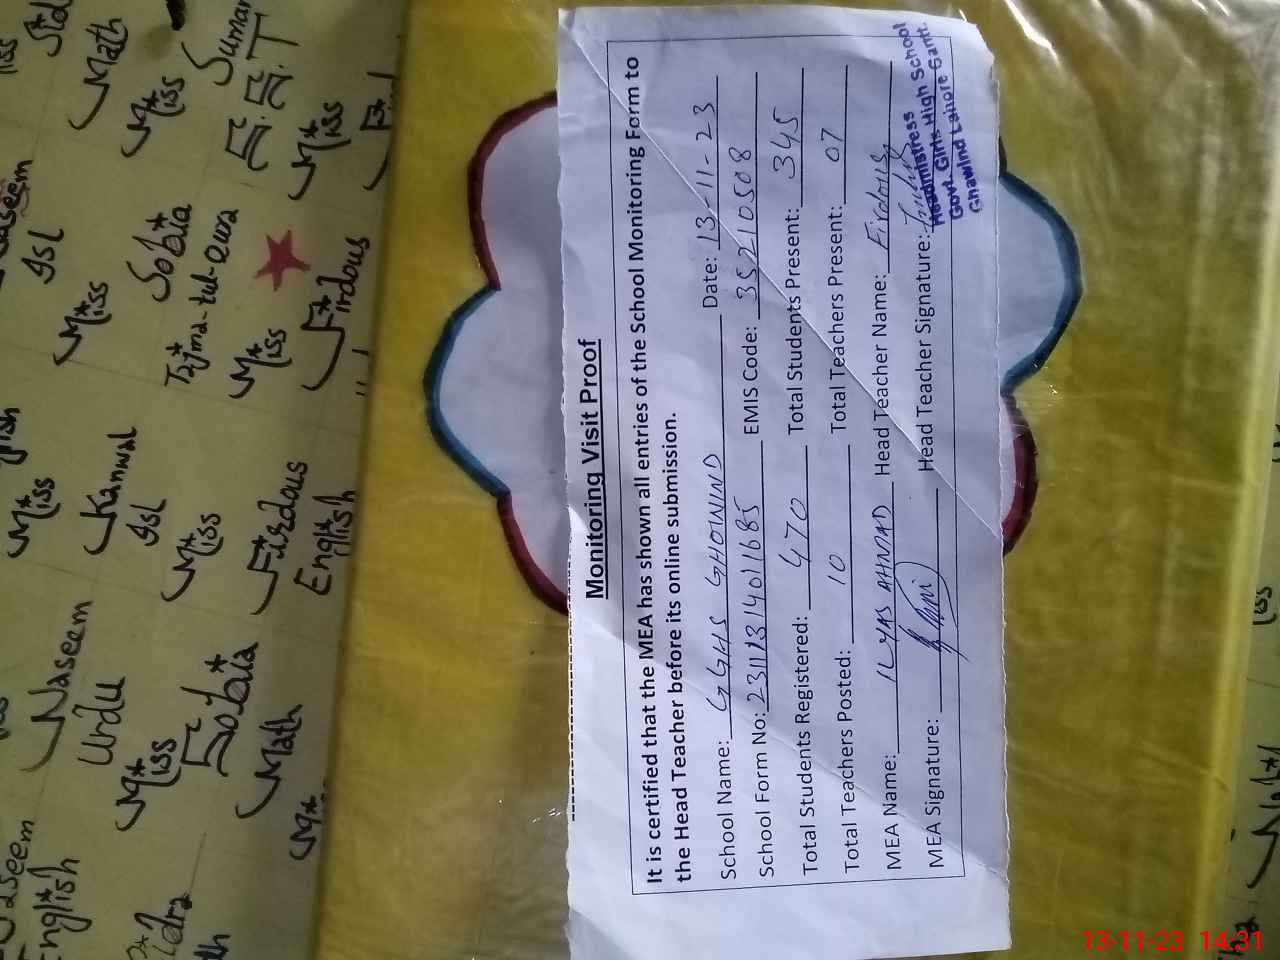 Monitoring Visit Proof
It is certified that the MEA has shown all entries of the School Monitoring Form to
the Head Teacher before its online submission.
School Name: GGHS GHOWIND Date: 13-11-23
School Form No: 23111314011685 EMIS Code: 35210508
Total Students Registered: 470 Total Students Present: 345
Total Teachers Posted: 10 Total Teachers Present: 07
MEA Name: ILYAS AHMAD Head Teacher Name: Firdous
MEA Signature: Head Teacher Signature:
Headmistress
Govt. Girls High School
Ghawind Lahore Cantt.
Math
Miss
Suman
E.E.T
Miss
Isl
Miss
Sobia
Tarjma-tul-Qura
Miss
Firdous
Miss
Kanwal
Isl
Miss
Firdous
English
Naseem
Urdu
Miss
Sobia
Math
Naseem
English
13-11-23 14:31